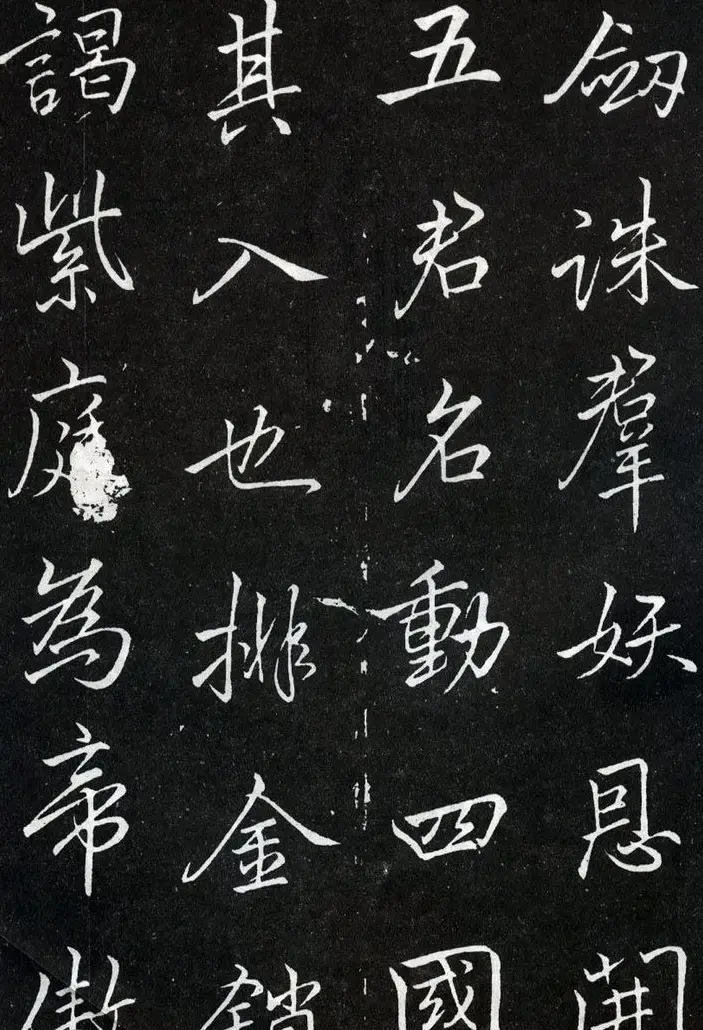 劔誅羣妖恩開
五君名動四國
其入也排金鎖
謁紫庭為帝傲